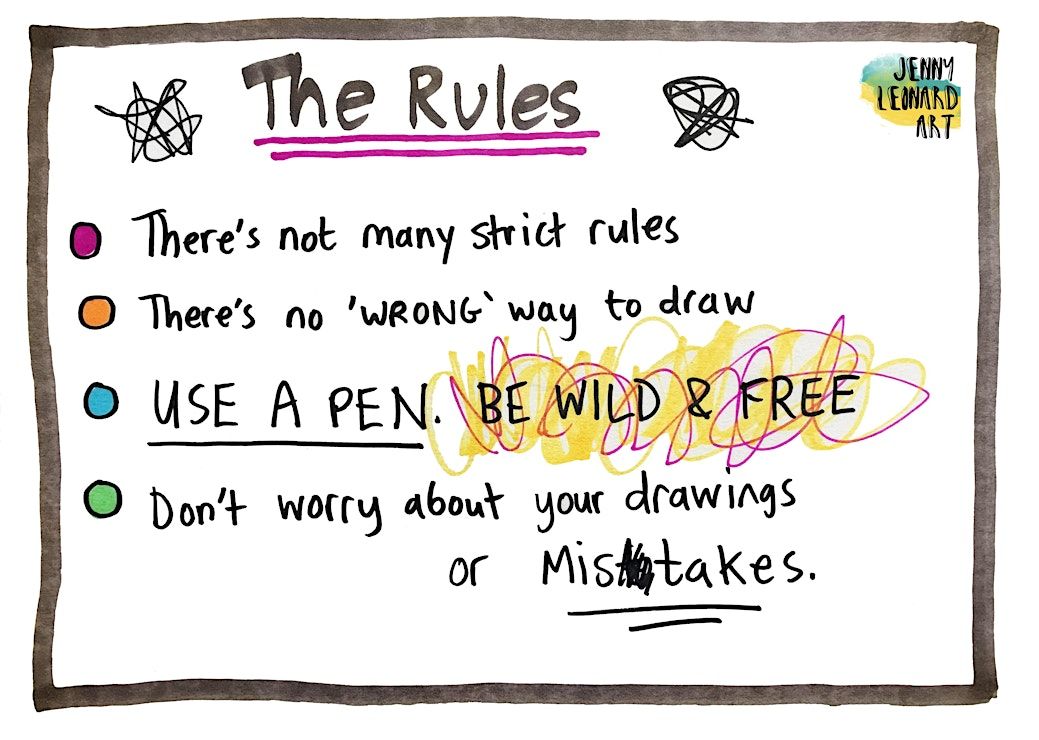 The Rules
JENNY
LEONARD
ART
There's not many strict rules
There's no 'WRONG' way to draw
USE A PEN. BE WILD & FREE
Don't worry about your drawings
or Mistakes.